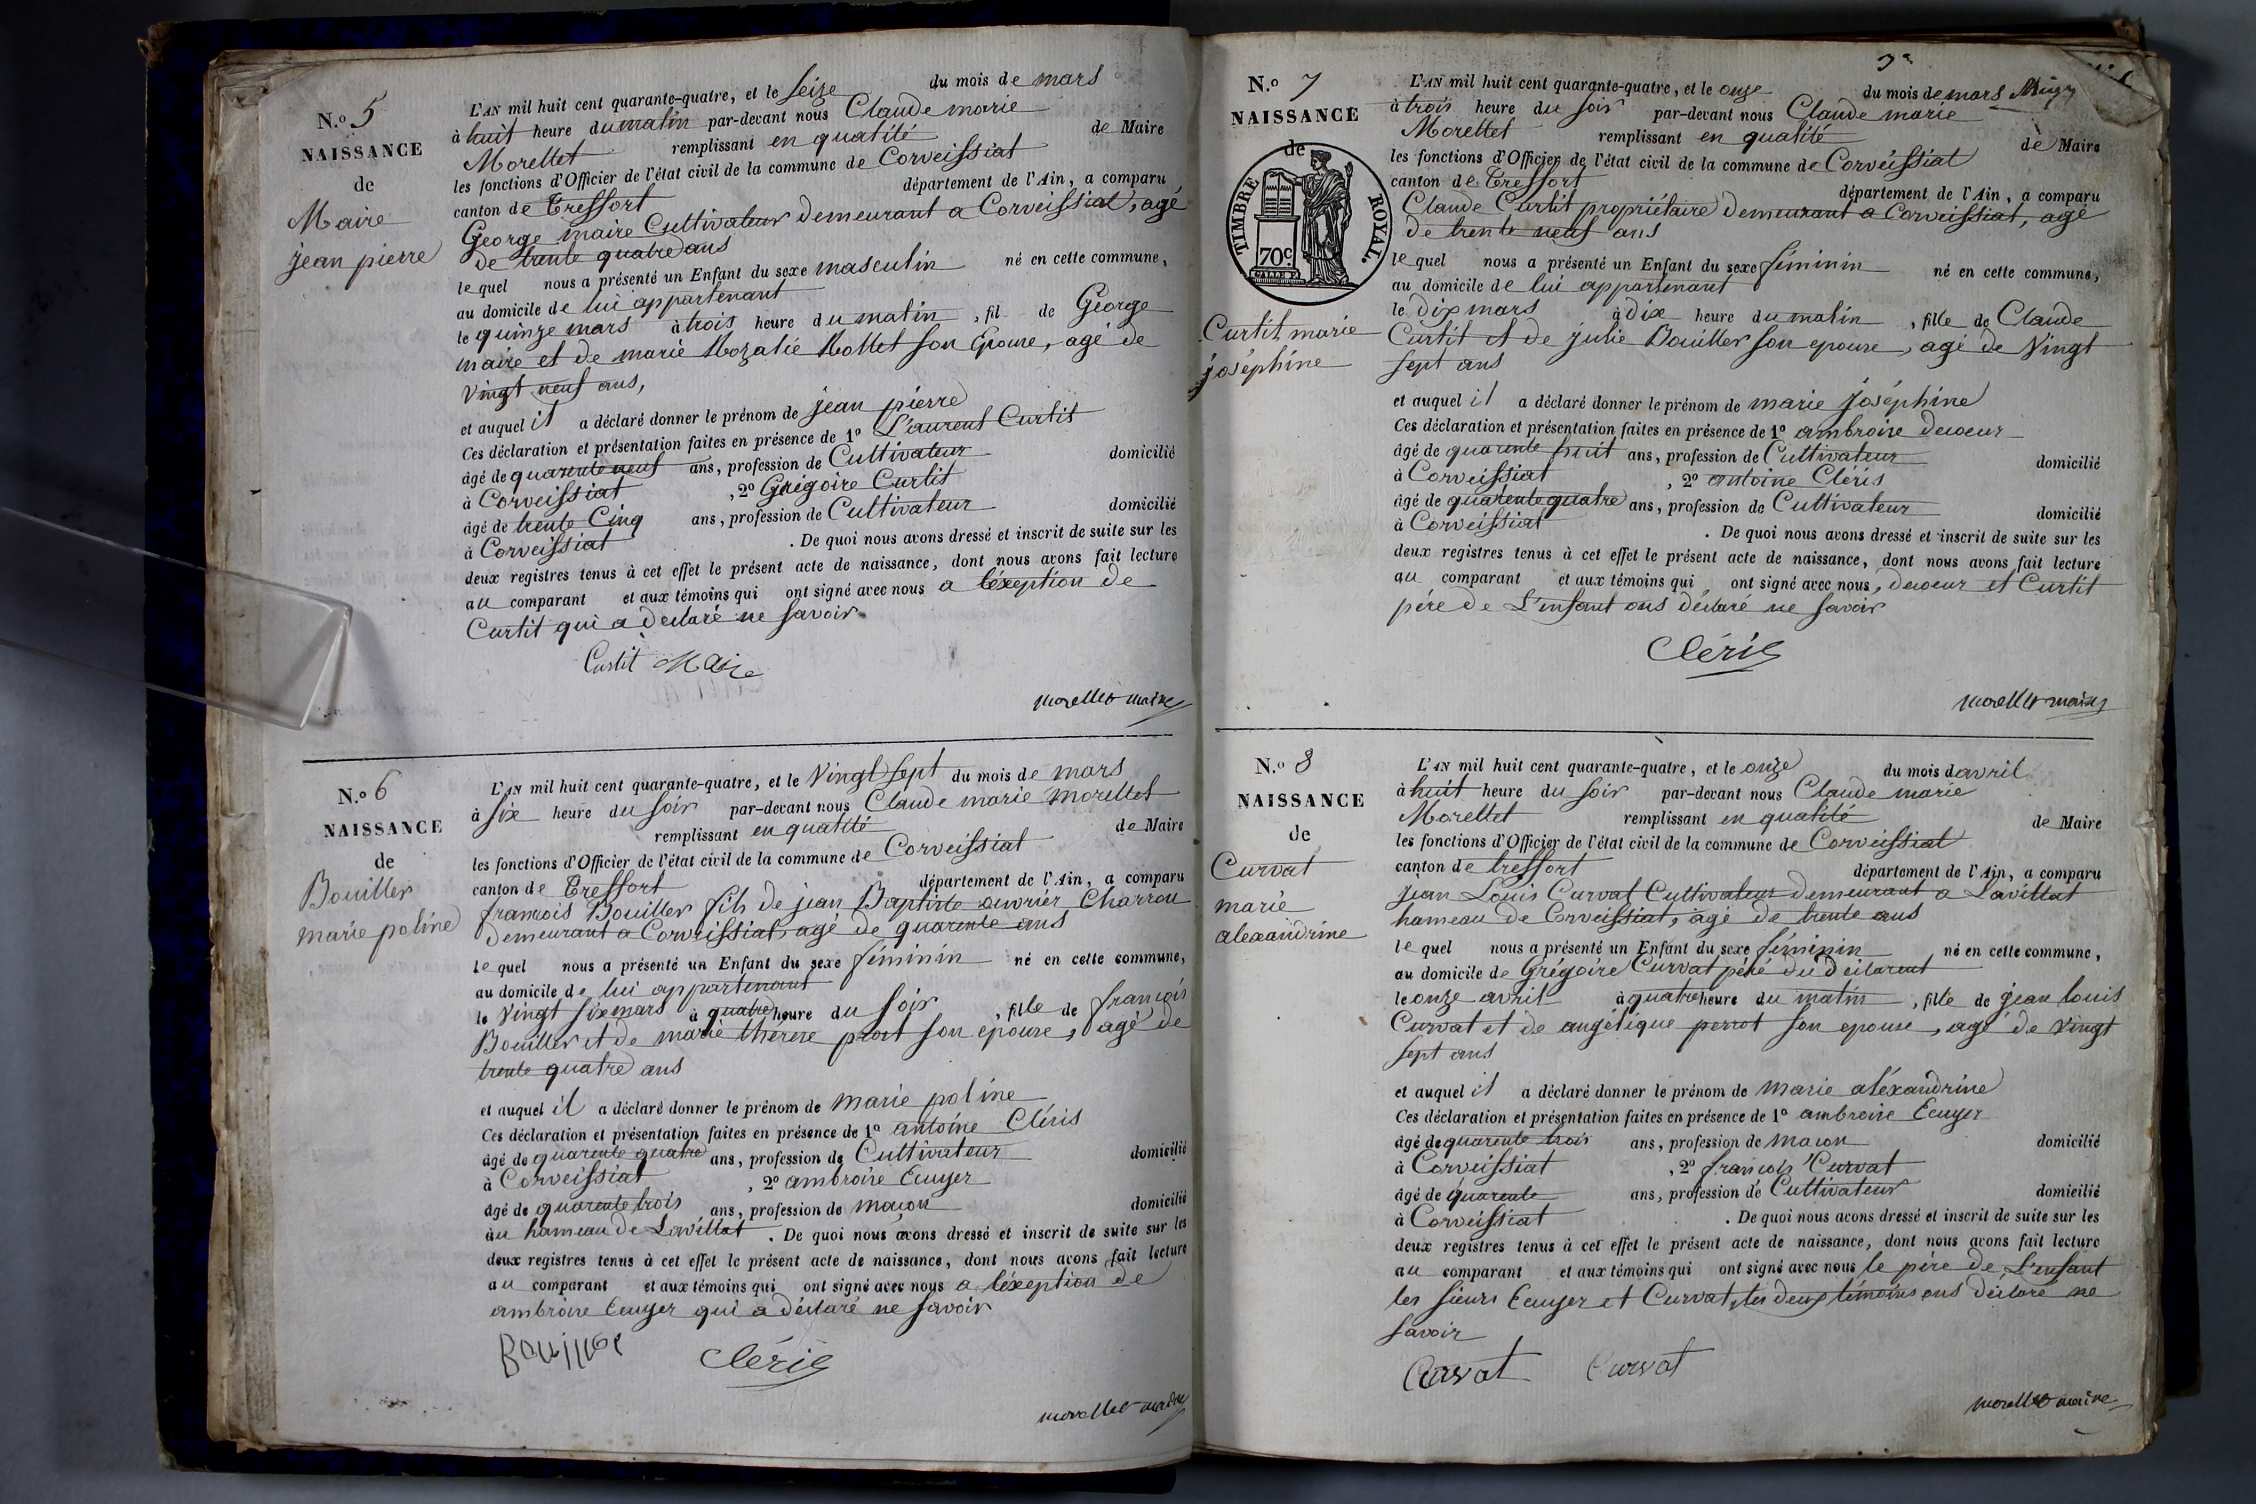 N.o 5
NAISSANCE
de
Maire
jean pierre
L'AN mil huit cent quarante-quatre, et le seize du mois de mars
à huit heure du matin par-devant nous Claude marie
Morellet remplissant en qualité de Maire
les fonctions d'Officier de l'état civil de la commune de Corveissiat
canton de Treffort département de l'Ain, a comparu
George maire Cultivateur demeurant a Corveissiat, agé
de trente quatre ans
lequel nous a présenté un Enfant du sexe masculin né en cette commune,
au domicile de lui appartenant
le quinze mars à trois heure du matin, fil de George
maire et de marie Rozalie Rollet son Epouse, agé de
vingt neuf ans,
et auquel il a déclaré donner le prénom de jean pierre
Ces déclaration et présentation faites en présence de 1º Laurent Curtit
âgé de quarente neuf ans, profession de Cultivateur domicilié
à Corveissiat, 2º Grégoire Curtit
âgé de trente Cinq ans, profession de Cultivateur domicilié
à Corveissiat. De quoi nous avons dressé et inscrit de suite sur les
deux registres tenus à cet effet le présent acte de naissance, dont nous avons fait lecture
au comparant et aux témoins qui ont signé avec nous a l'éxeption de
Curtit qui a déclaré ne savoir
Curtit Maire
morellet maire
N.o 6
NAISSANCE
de
Bouiller
marie poline
L'AN mil huit cent quarante-quatre, et le Vingt sept du mois de mars
à six heure du soir par-devant nous Claude marie Morellet
remplissant en qualité de Maire
les fonctions d'Officier de l'état civil de la commune de Corveissiat
canton de Treffort département de l'Ain, a comparu
francois Bouiller fils de jean Baptiste ouvrier Charron
demeurant a Corveissiat, agé de quarente ans
lequel nous a présenté un Enfant du sexe féminin né en cette commune,
au domicile de lui appartenant
le Vingt six mars à quatre heure du soir, fille de francois
Bouiller et de marie therese son epouse, agé de
trente quatre ans
et auquel il a déclaré donner le prénom de marie poline
Ces déclaration et présentation faites en présence de 1º antoine Cléris
âgé de quarente quatre ans, profession de Cultivateur domicilié
à Corveissiat, 2º ambroise Ecuyer
âgé de quarente trois ans, profession de maçon domicilié
au hameau de Lavillat. De quoi nous avons dressé et inscrit de suite sur les
deux registres tenus à cet effet le présent acte de naissance, dont nous avons fait lecture
au comparant et aux témoins qui ont signé avec nous a l'éxeption de
ambroise Ecuyer qui a déclaré ne savoir
Bouiller Cléris
morellet maire
N.o 7
NAISSANCE
de
TIMBRE ROYAL.
70c.
Curtit marie
joséphine
L'AN mil huit cent quarante-quatre, et le onze du mois de mars
à trois heure du soir par-devant nous Claude marie
Morellet remplissant en qualité de Maire
les fonctions d'Officier de l'état civil de la commune de Corveissiat
canton de Treffort département de l'Ain, a comparu
Claude Curtit propriétaire demeurant a Corveissiat, agé
de trente neuf ans
lequel nous a présenté un Enfant du sexe féminin né en cette commune,
au domicile de lui appartenant
le dix mars à dix heure du matin, fille de Claude
Curtit et de julie Bouiller son epouse, agé de Vingt
sept ans
et auquel il a déclaré donner le prénom de marie joséphine
Ces déclaration et présentation faites en présence de 1º ambroise decoeur
âgé de quarente huit ans, profession de Cultivateur domicilié
à Corveissiat, 2º antoine Cléris
âgé de quarente quatre ans, profession de Cultivateur domicilié
à Corveissiat. De quoi nous avons dressé et inscrit de suite sur les
deux registres tenus à cet effet le présent acte de naissance, dont nous avons fait lecture
au comparant et aux témoins qui ont signé avec nous, decoeur et Curtit
pére de L'enfant ons déclaré ne savoir
Cléris
morellet maire
N.o 8
NAISSANCE
de
Curvat
marie
alexandrine
L'AN mil huit cent quarante-quatre, et le onze du mois davril
à huit heure du soir par-devant nous Claude marie
Morellet remplissant en qualité de Maire
les fonctions d'Officier de l'état civil de la commune de Corveissiat
canton de treffort département de l'Ain, a comparu
jean Louis Curvat Cultivateur demeurant a Lavillat
hameau de Corveissiat, agé de trente ans
lequel nous a présenté un Enfant du sexe féminin né en cette commune,
au domicile de Grégoire Curvat pére du déclarent
le onze avril à quatre heure du matin, fille de jean louis
Curvat et de angélique perrot son epouse, agé de vingt
sept ans
et auquel il a déclaré donner le prénom de marie aléxandrine
Ces déclaration et présentation faites en présence de 1º ambroise Ecuyer
âgé de quarente trois ans, profession de macon domicilié
à Corveissiat, 2º francois Curvat
âgé de quarente ans, profession de Cultivateur domicilié
à Corveissiat. De quoi nous avons dressé et inscrit de suite sur les
deux registres tenus à cet effet le présent acte de naissance, dont nous avons fait lecture
au comparant et aux témoins qui ont signé avec nous le pére de L'enfant
les sieurs Ecuyer et Curvat, les deux témoins ons déclaré ne
savoir
Curvat Curvat
morellet maire